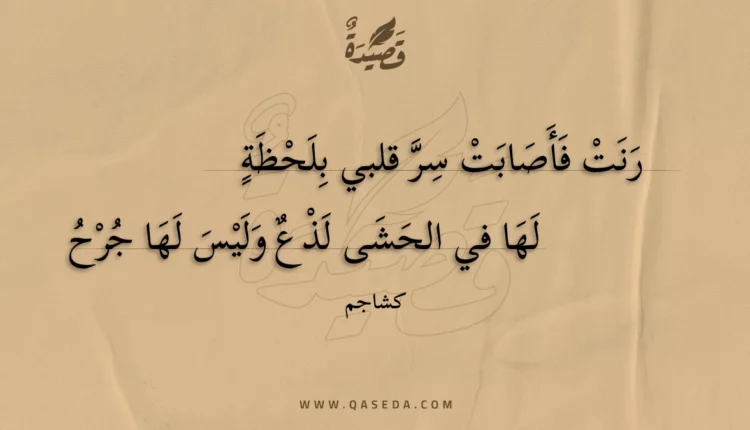 قَصِيْدَةٌ
رَنَتْ فَأَصَابَتْ سِرَّ قلبي بِلَحْظَةٍ
لَهَا في الحَشَى لَذْعٌ وَلَيْسَ لَهَا جُرْحُ
كشاجم
WWW.QASEDA.COM